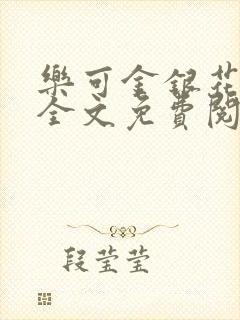 樂可金銀花
全文免費閱
段莹莹